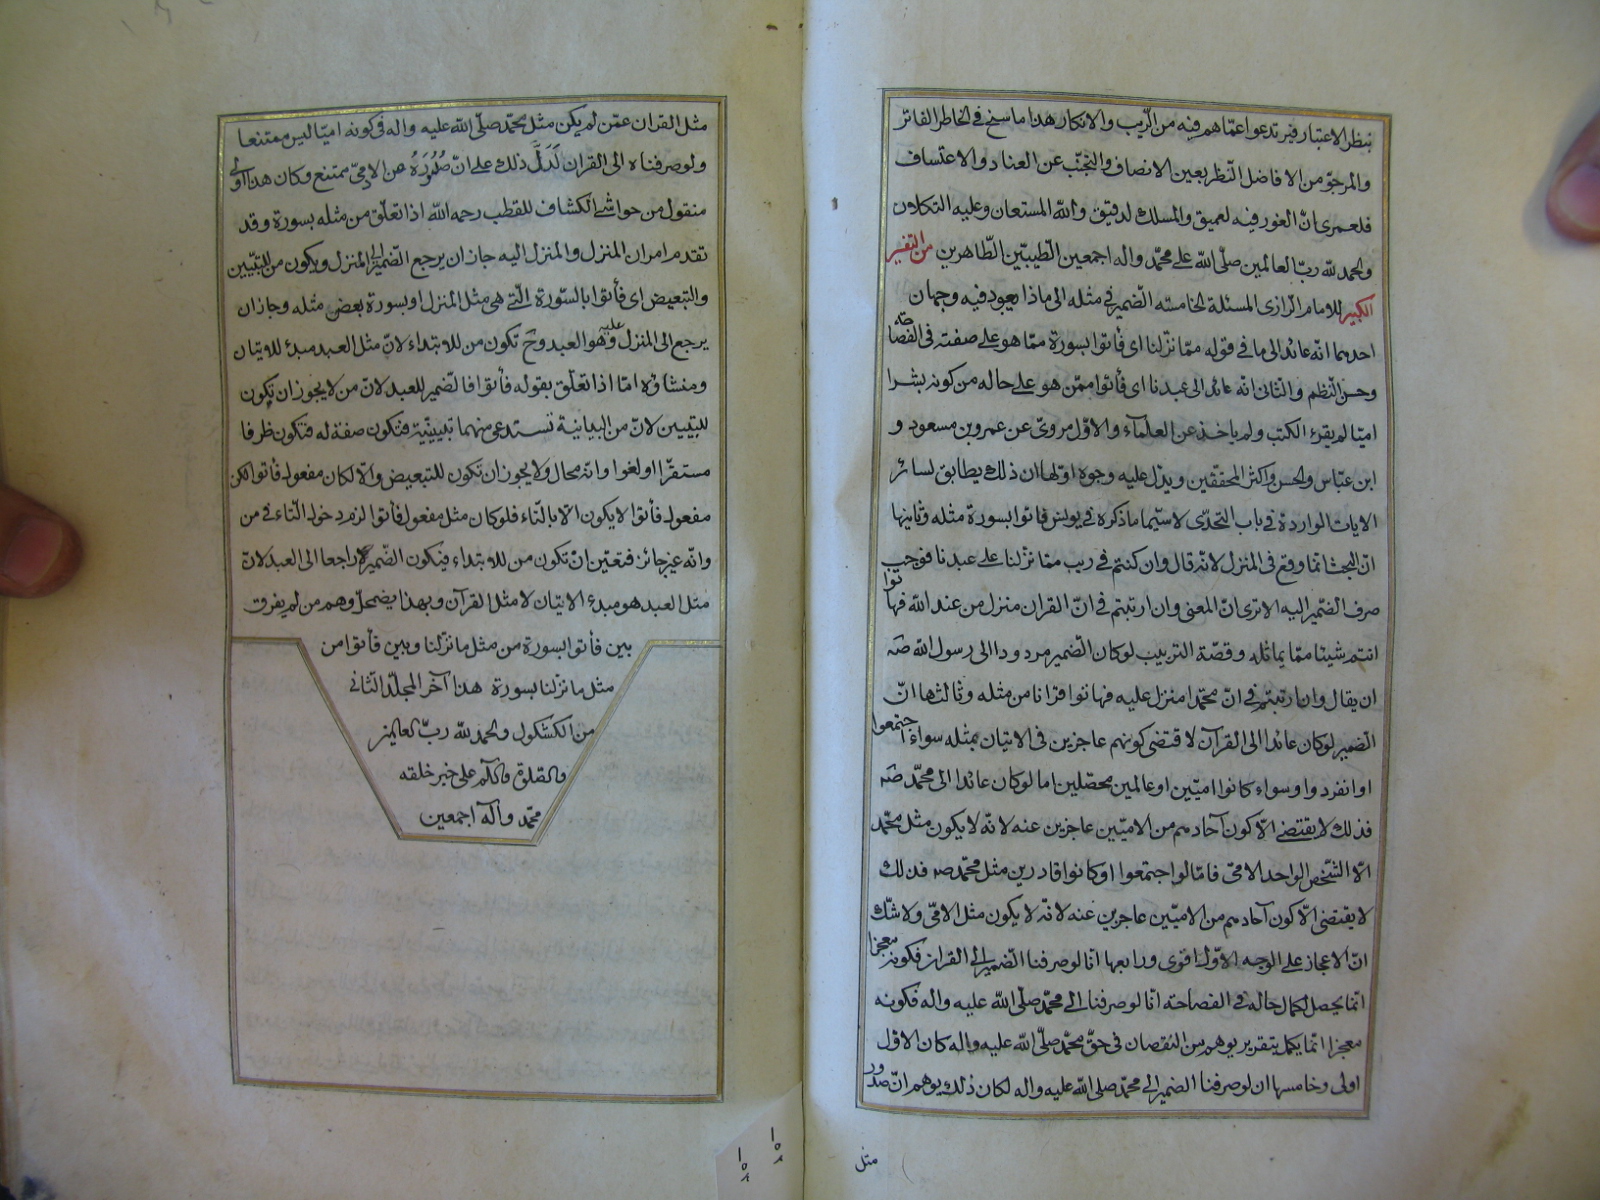 بنظر الاعتبار فيرتدعوا عما هم فيه من الريب والانكار هذا ما سنح في الخاطر الفاتر
والمرجو من الافاضل النظر بعين الانصاف والتجنب عن العناد والاعتساف
فلعمرى ان الغور فيه لعميق والمسلك لدقيق والله المستعان وعليه التكلان
والحمد لله رب العالمين صلى الله على محمد واله اجمعين الطيبين الطاهرين من التفسير
الكبير للامام الرازى المسئلة الخامسه الضمير في مثله الى ماذا يعود فيه وجهان
احدهما انه عائد الى ما في قوله مما نزلنا اى فأتوا بسورة مما هو على صفته في الفصاحة
وحسن النظم والثانى انه عائد الى عبدنا اى فأتوا ممن هو على حاله من كونه بشرا
اميا لم يقرء الكتب ولم ياخذ عن العلماء والاول مروى عن عمر وبن مسعود و
ابن عباس والحسن واكثر المحققين ويدل عليه وجوه اولها ان ذلك يطابق لسائر
الايات الواردة في باب التحدى لا سيما ما ذكره في يونس فاتوا بسورة مثله وثانيها
ان البحث انما وقع في المنزل لانه قال وان كنتم في ريب مما نزلنا على عبدنا فوجب
صرف الضمير اليه الا ترى ان المعنى وان ارتبتم في ان القران منزل من عند الله فهاتوا
انتم شيئا مما يماثله وقضة الترتيب لو كان الضمير مردودا الى رسول الله صه
ان يقال وان ارتبتم في ان محمدا منزل عليه فهاتوا قرانا من مثله وثالثها ان
الضمير لو كان عائدا الى القرآن لاقتضى كونهم عاجزين في الاتيان بمثله سواء اجتمعوا
او انفردوا وسواء كانوا اميين او عالمين محصلين اما لو كان عائدا الى محمد صه
فذلك لا يقتضي الا كون آحادهم من الاميين عاجزين عنه لانه لا يكون مثل محمد
الا الشخص الواحد الامى فاما لو اجتمعوا او كانوا قادرين مثل محمد صه فذلك
لا يقتضى الا كون آحادهم من الاميين عاجزين عنه لانه لا يكون مثل الامى ولا شك
ان الاعجاز على الوجه الاول اقوى ورابعها انا لو صرفنا الضمير الى القران فكونه معجزا
انما يحصل لكمال حاله في الفصاحة انا لو صرفنا الى محمد صلى الله عليه واله فكونه
معجزا انما يكمل بتقرير يوهم من النقصان في حق محمد صلى الله عليه واله كان الاول
اولى وخامسها ان لو صرفنا الضمير الى محمد صلى الله عليه واله لكان ذلك يوهم ان صدور
مثل
مثل القران عمن لم يكن مثل محمد صلى الله عليه واله في كونه اميا ليس ممتنعا
ولو صرفناه الى القران لدل ذلك على ان صدوره عن الامى ممتنع وكان هذا اولى
منقول من حواشى الكشاف للقطب رحمه الله اذا تعلق من مثله بسورة وقد
تقدم امران المنزل والمنزل اليه جاز ان يرجع الضمير الى المنزل ويكون من للتبيين
والتبعيض اى فأتوا بالسورة التى هى مثل المنزل او بسورة بعض مثله وجاز ان
يرجع الى المنزل عليه وهو العبد وح تكون من للابتداء لان مثل العبد مبدئ للاتيان
ومنشاؤه اما اذا تعلق بقوله فأتوا فالضمير للعبد لان من لا يجوز ان تكون
للتبيين لان من البيانية تستدعى منهما تبيينية فتكون صفة له فتكون ظرفا
مستقرا او لغوا وانه محال ولا يجوز ان تكون للتبعيض والا لكان مفعول فاتوا لكن
مفعول فأتوا لا يكون الا بالتاء فلو كان مثل مفعول فأتوا لزم دخول التاء في من
وانه غير جائز فتعين ان تكون من للابتداء فيكون الضمير راجعا الى العبد لان
مثل العبد هو مبدء الاتيان لا مثل القرآن وبهذا يضمحل وهم من لم يفرق
بين فأتوا بسورة من مثل ما نزلنا وبين فأتوا من
مثل ما نزلنا بسورة هذا آخر المجلد الثانى
من الكشكول والحمد لله رب العالمين
والصلوة والسلم على خير خلقه
محمد وآله اجمعين
١٥٢
١٥٢